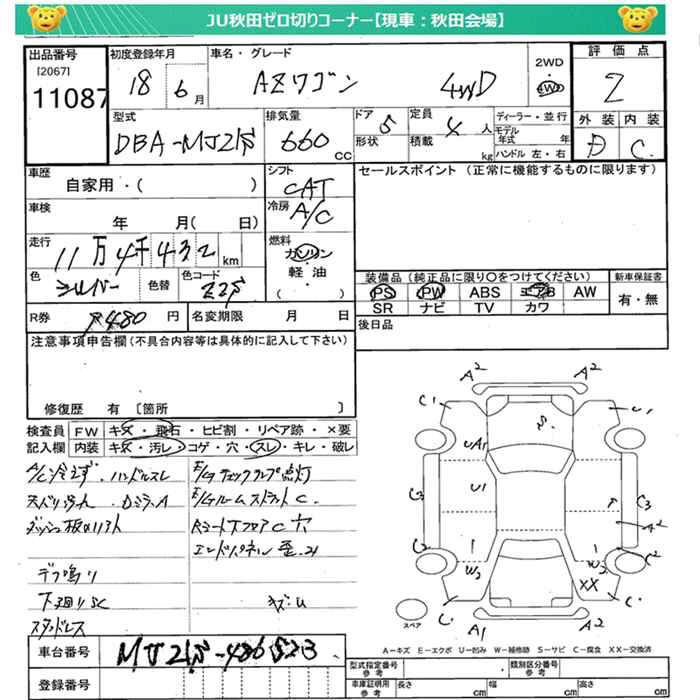 JU秋田ゼロ切りコーナー【現車：秋田会場】
出品番号
[2067]
11087
初度登録年月
18 6月
車名・グレード
AZワゴン 4WD
2WD
・
4WD
評価点
2
型式
DBA-MJ21S
排気量
660 CC
ドア 5
形状
定員 4 人
積載 kg
ディーラー・並行
モデル年式 年
ハンドル 左・右
外装 内装
D C
車歴
自家用・( )
シフト
CAT
セールスポイント (正常に機能するものに限ります)
車検
年 月( 日)
冷房
A/C
走行
11万4千432 km
燃料
ガソリン
・
軽油
・
( )
色
シルバー
色替
色コード
Z2S
装備品 (純正品に限り○をつけてください)
PS PW ABS エアB AW
SR ナビ TV カワ
新車保証書
有・無
R券 480 円
名変期限 月 日
後日品
注意事項申告欄(不具合内容等は具体的に記入して下さい)
修復歴 有 [箇所 ]
検査員 FW キズ・飛石・ヒビ割・リペア跡・×要
記入欄 内装 キズ・汚レ・コゲ・穴・スレ・キレ・破レ
A/C冷えず ハンドルスレ
E/Gチェックランプ点灯
E/GルームストラットC
エンドパネル歪
デフ鳴り
下廻りSC
スタッドレス
キズ・U
A2 A2
C1 U1
UA1 S
C3 U1 C3
A2
C2 C2
W2 W2
XX
C C
スペア A1 A2
A－キズ E－エクボ U－凹み W－補修跡 S－サビ C－腐食 XX－交換済
車台番号 MJ21S-486523
登録番号
型式指定番号
参考
類別区分番号
参考
車庫証明用
参考
長さ cm 幅 cm 高さ cm